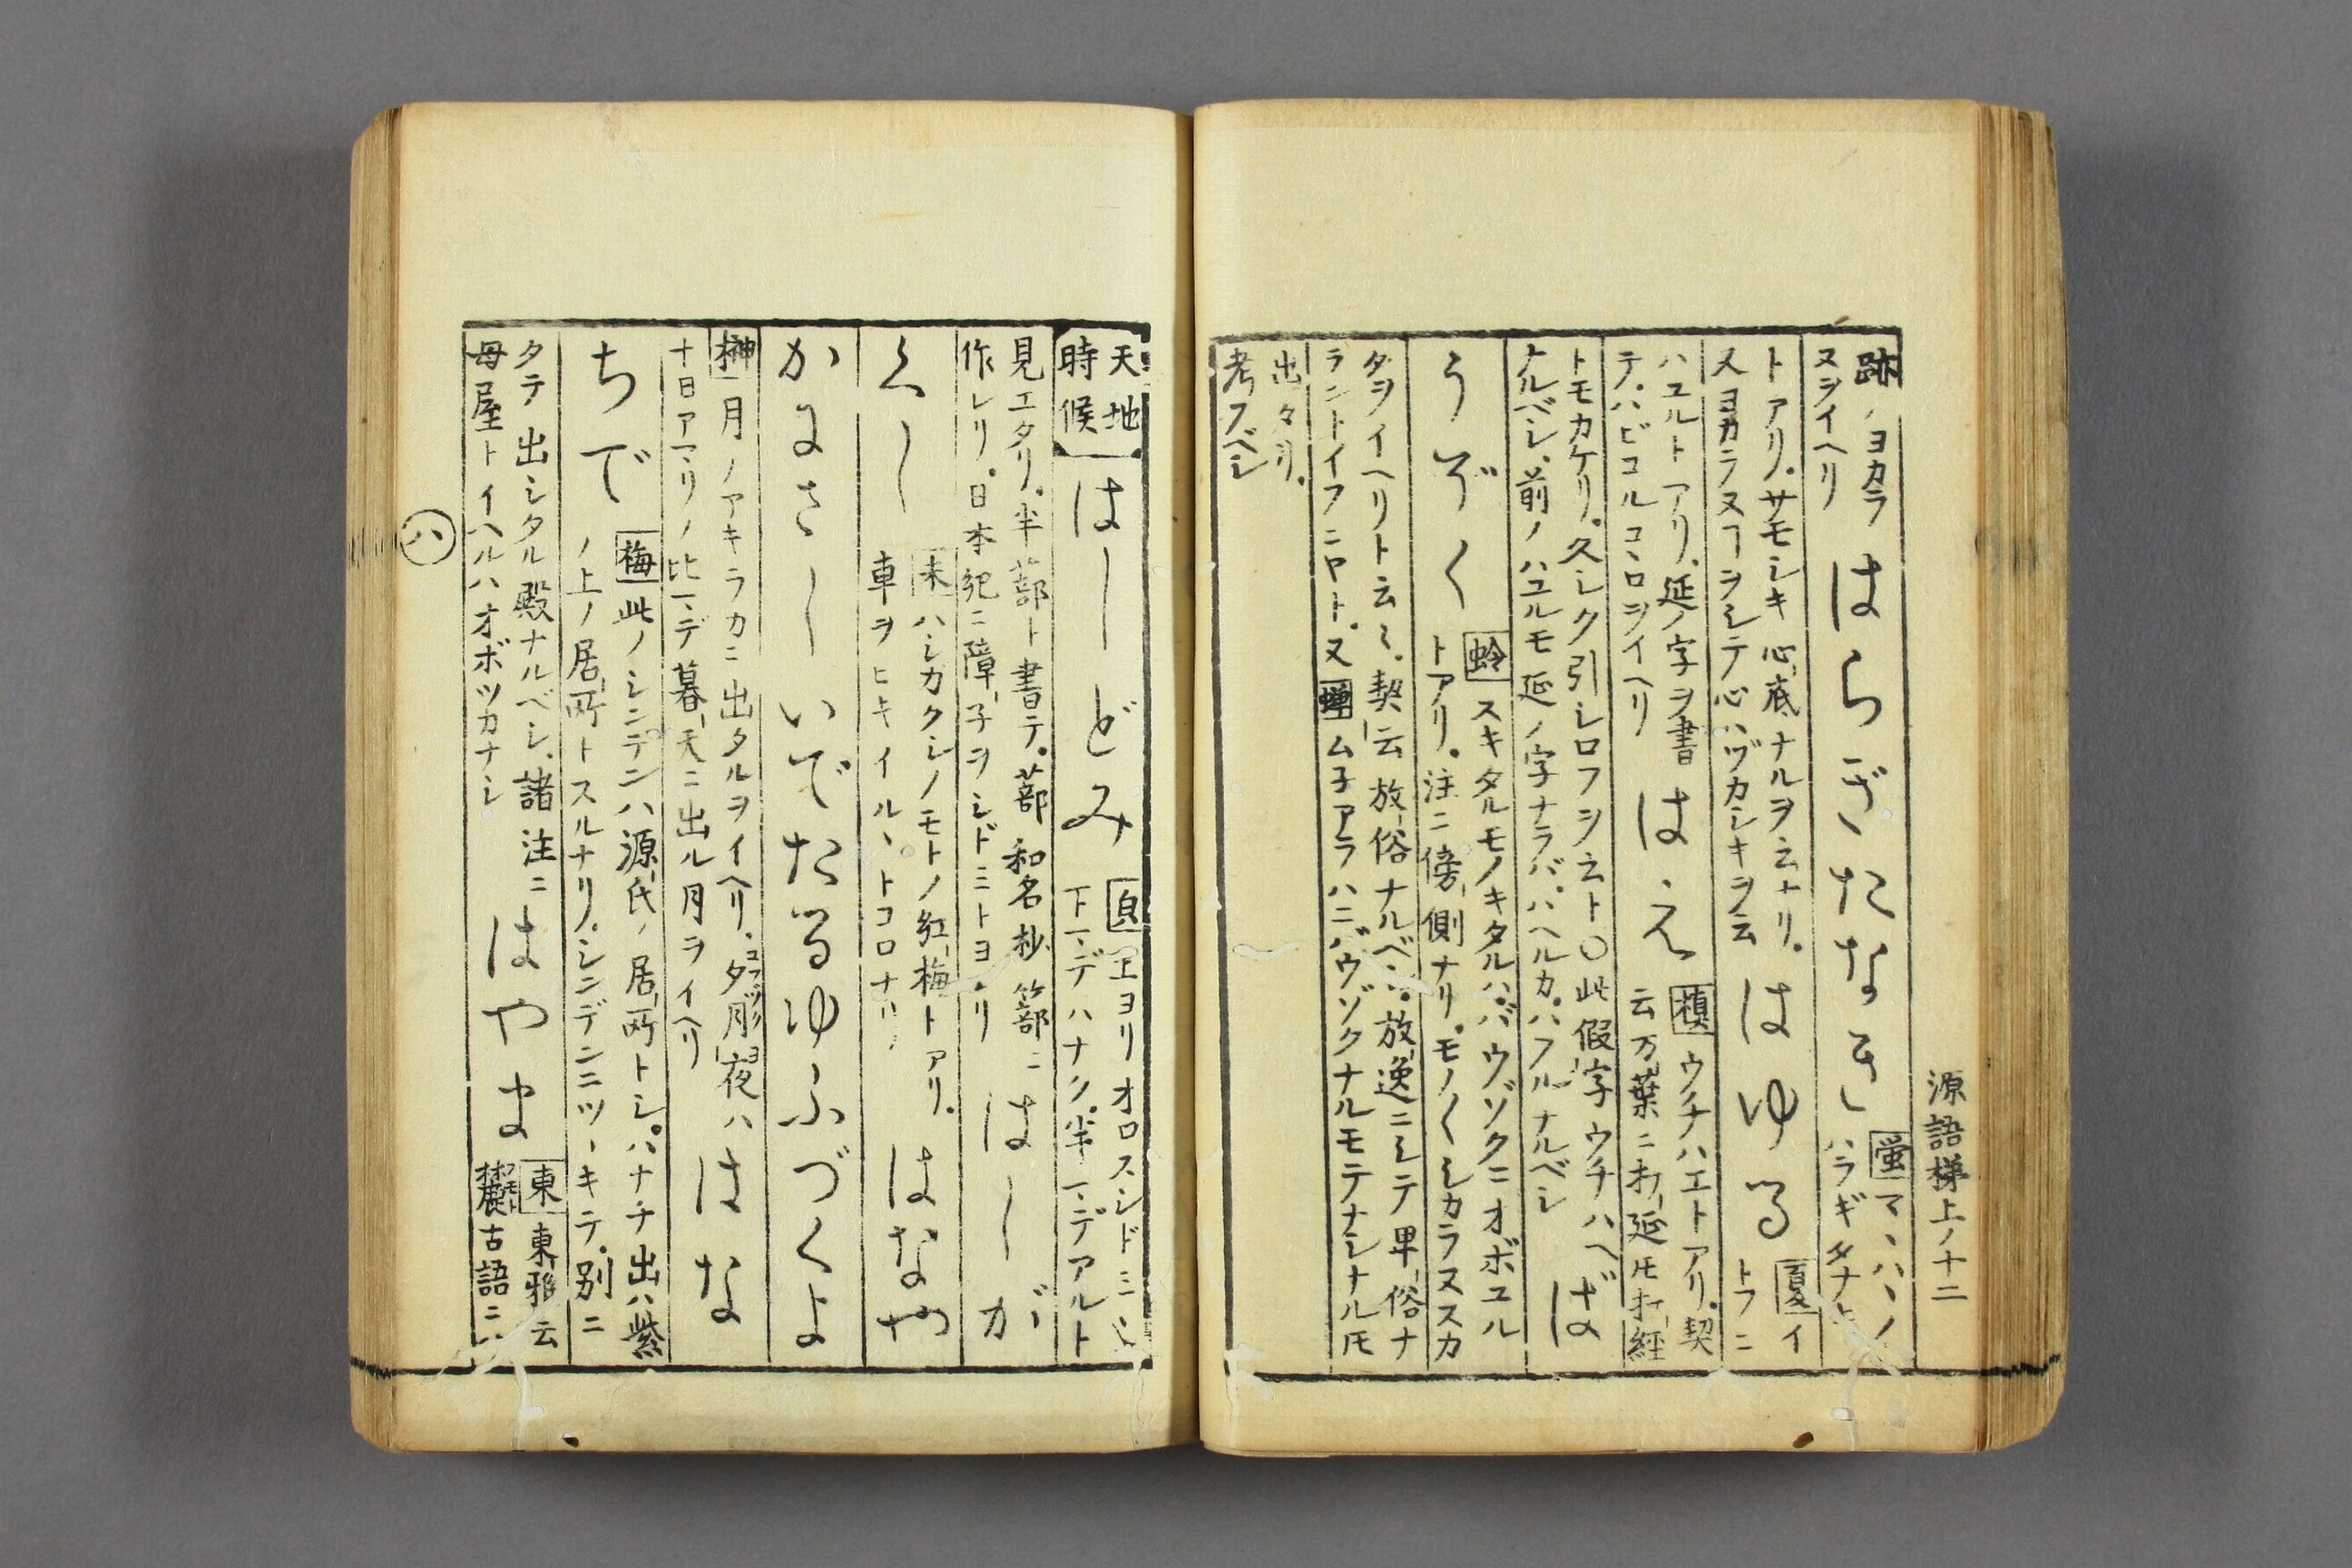 源語梯上ノ十二
跡ノヨカラ
ヌヲイヘリ
はらぎたなき
螢マヽハヽノ
ハラギタナ
トアリ。サモシキ心底ナルヲ云ナリ。
又ヨカラヌヿヲシテ心ハヅカシキヲ云
はゆる
夏イ
トフニ
ハユルトアリ。延ノ字ヲ書
テ。ハビコルコヽロヲイヘリ
はヽえ
槙ウチハエトアリ。契
云万葉ニ打延圧打経
トモカケリ。久シク引シロフヲ云ト〇此假字ウチハヘ
ナルベシ。前ノハユルモ延ノ字ナラバ。ハヘルカ。ハフルナルベシ
ば
うぞく
蛉スキタルモノキタルハ。バウゾクニオボユル
トアリ。注ニ傍側ナリ。モノ〱シカラヌスカ
タヲイヘリト云〻。契云放俗ナルベシ。放逸ニシテ卑俗ナ
ラントイフニヤト。又蟬ムネアラハニバウゾクナルモテナシナル圧
出タリ。
考フベシ
天地
時候
はしどみ
上ヨリオロスシドミ
下マデハナク。半マデアルト
見エタリ。半蔀ト書テ。蔀和名抄篰ニ
作レリ。日本紀ニ障子ヲシドミトヨリ
はしが
くし
末ハシカクシノモトノ紅梅トアリ。
車ヲヒキイルヽトコロナリ
はなや
かにさしいでたるゆふづくよ
榊月ノアキラカニ出タルヲイヘリ。夕月夜ハ
十日アマリノ比マデ暮天ニ出ル月ヲイヘリ
はな
ちで
梅此ノシンデンハ源氏ノ居所トシ。ハナチ出ハ紫
ノ上ノ居所トスルナリ。シンデンニツヾキテ。別ニ
タテ出シタル殿ナルベシ。諸注ニ
母屋トイヘルハオボツカナシ
はやま
東東雅云
麓古語ニ
ハ